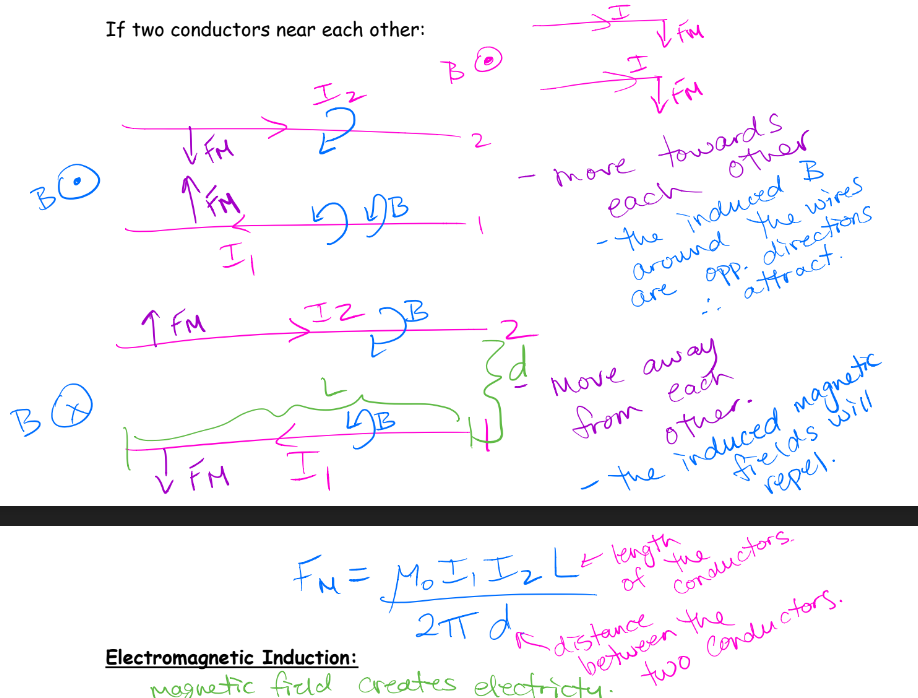 If two conductors near each other:
I
FM
B
I
FM
I2
2
FM
B
FM
B
1
I1
- move towards
each other
- the induced B
around the wires
are opp. directions
∴ attract.
FM
I2
B
2
d
B
L
B
1
I1
FM
- Move away
from each
other.
- the induced magnetic
fields will
repel.
FM = μ0 I1 I2 L / 2π d
← length
of the
conductors.
distance
between the
two conductors.
Electromagnetic Induction:
magnetic field creates electricty.